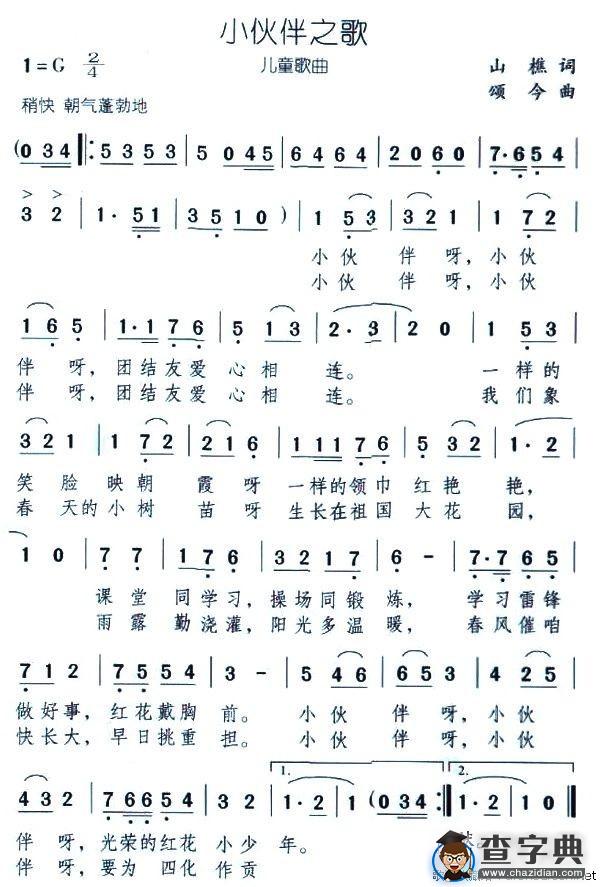 小伙伴之歌
1=G 2/4
儿童歌曲
山樵词
颂今曲
稍快 朝气蓬勃地
(0 3 4 ‖: 5 3 5 3 | 5 0 4 5 | 6 4 6 4 | 2 0 6 0 | 7·6 5 4 |
3 2 | 1· 5 1 | 3 5 1 0 ) | 1 5 3 | 3 2 1 | 1 7 2 |
小伙 伴呀,小伙
小伙 伴呀,小伙
1 6 5 | 1·1 7 6 | 5 1 3 | 2·3 | 2 0 | 1 5 3 |
伴呀,团结友爱心相连。一样的
伴呀,团结友爱心相连。我们象
3 2 1 | 1 7 2 | 2 1 6 | 1 1 1 7 6 | 5 3 2 | 1·2 |
笑脸映朝霞呀一样的领巾红艳艳,
春天的小树苗呀生长在祖国大花园,
1 0 | 7 7 | 1 7 6 | 3 2 1 7 | 6 - | 7·7 6 5 |
课堂同学习,操场同锻炼,学习雷锋
雨露勤浇灌,阳光多温暖,春风催咱
7 1 2 | 7 5 5 4 | 3 - | 1 5 3 | 6 5 3 | 4 2 5 |
做好事,红花戴胸前。小伙伴呀,小伙
快长大,早日挑重担。小伙伴呀,小伙
4 3 2 | 7 6 6 5 4 | 3 2 | 1·2 | 1 (0 3 4 :‖ 1·2 | 1 0 ‖
1. 2.
伴呀,光荣的红花小少年。
伴呀,要为四化作贡
查字典
www.chazidian.com